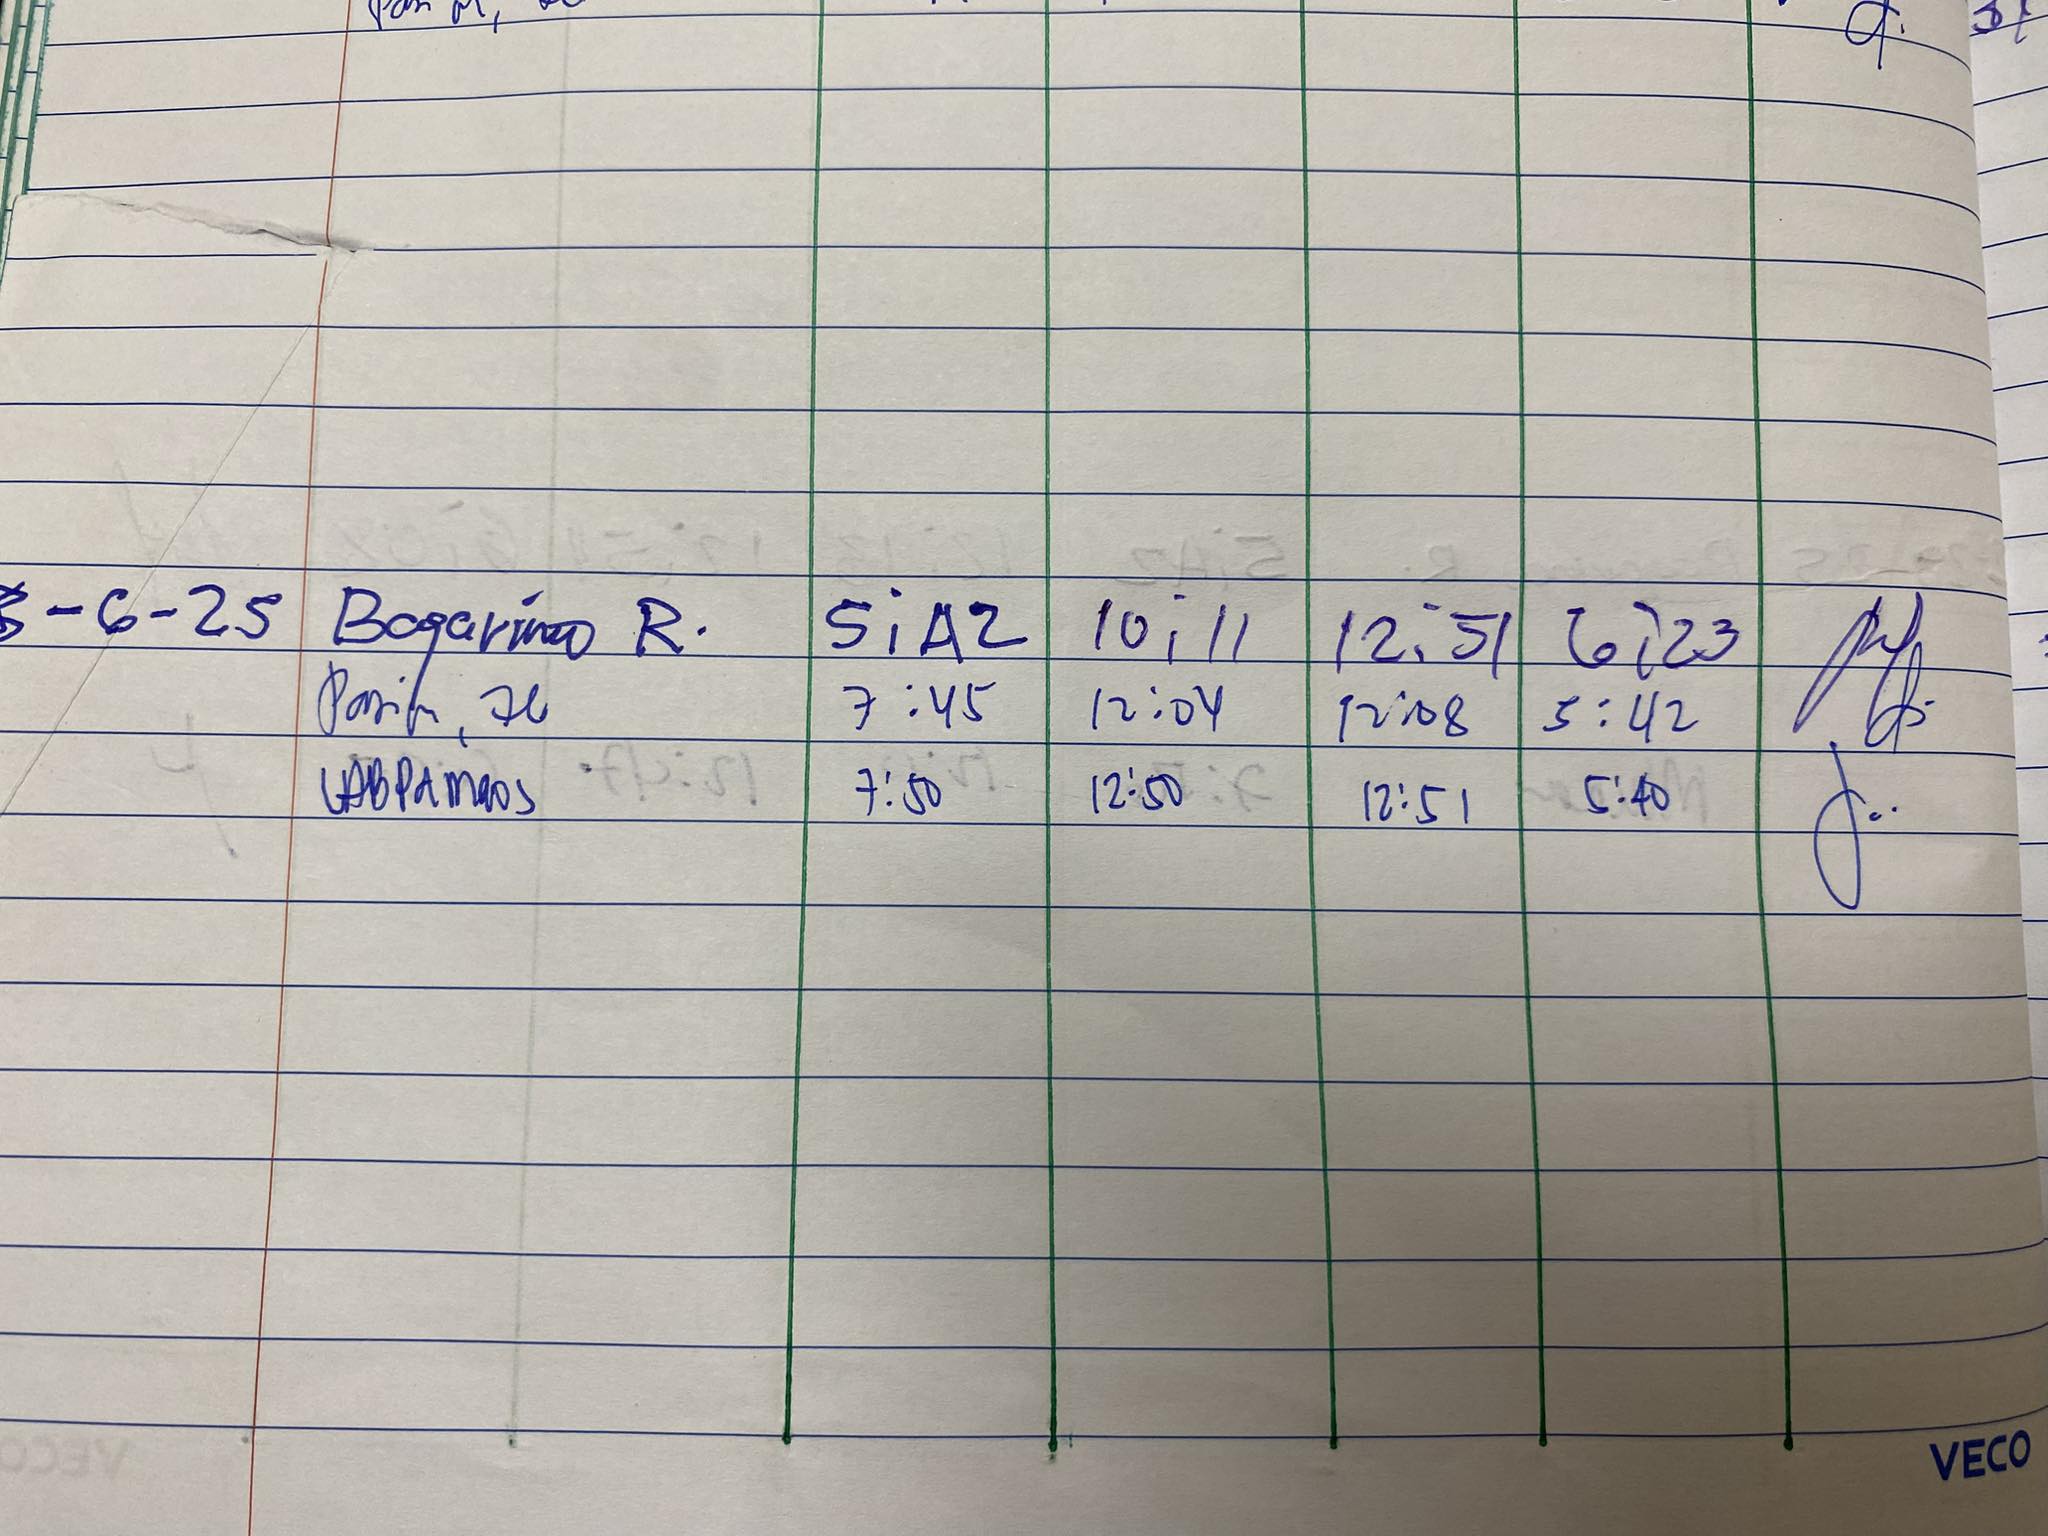 -6-25 Bagarino R. 5:42 10:11 12:51 6:23
7:45 12:04 12:08 5:42
7:50 12:50 12:51 5:40
VECO